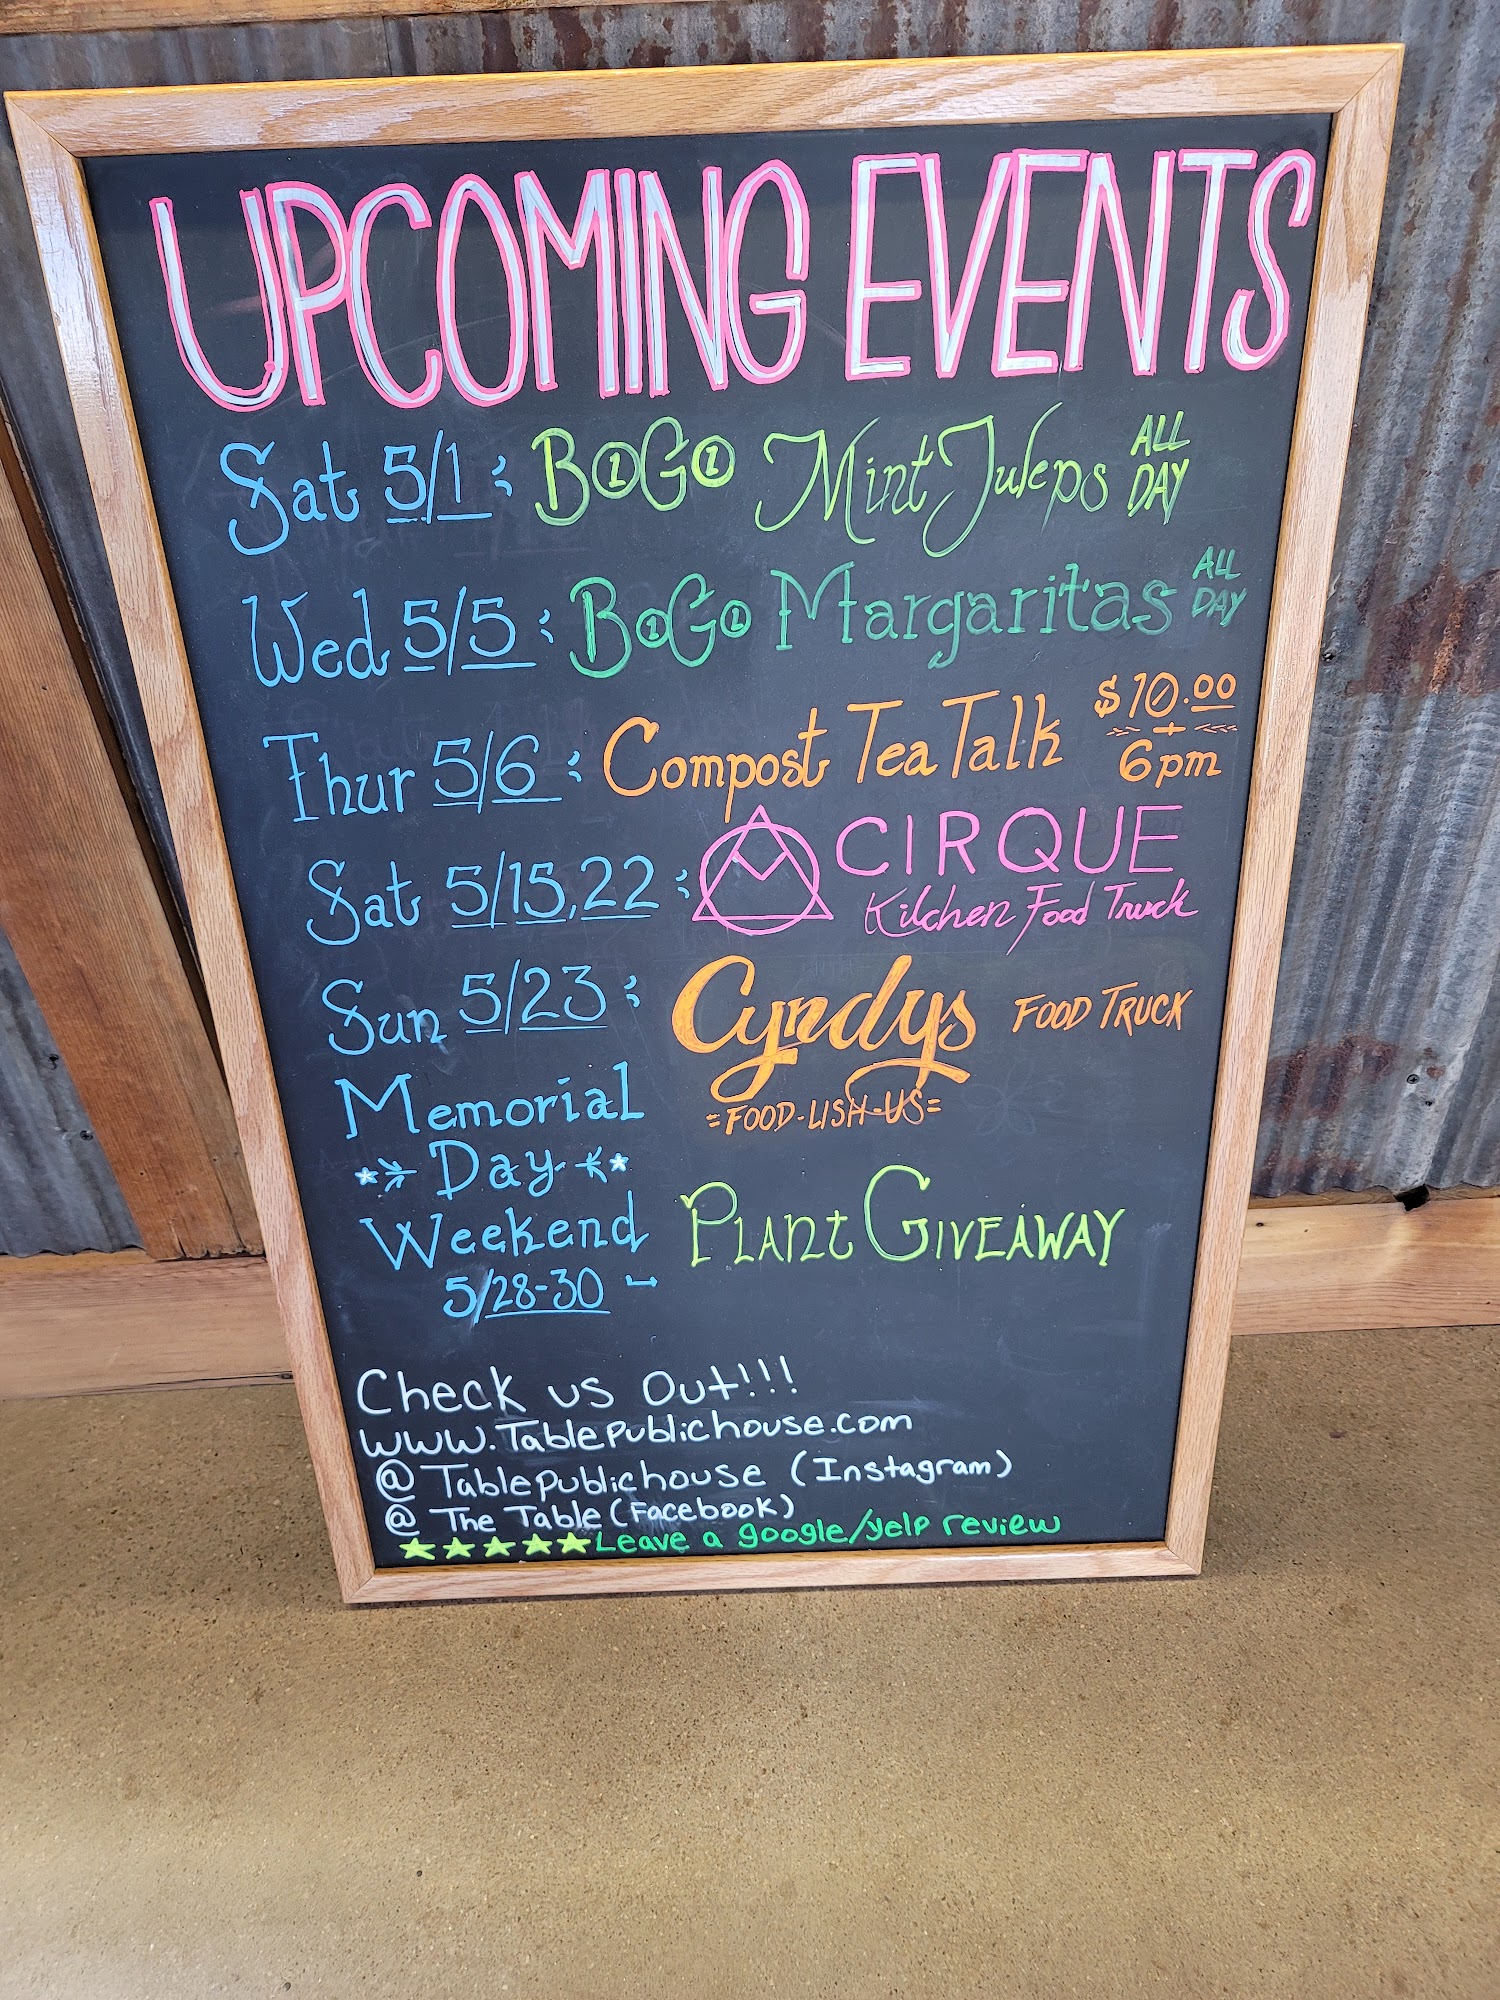 UPCOMING EVENTS
Sat 5/1: BOGO Mint Juleps ALL DAY
Wed 5/5: BOGO Margaritas ALL DAY
Thur 5/6: Compost Tea Talk $10.00
6pm
Sat 5/15,22: CIRQUE
Kitchen Food Truck
Sun 5/23: Cyndys FOOD TRUCK
=FOOD-LISH-US=
Memorial
Day
Weekend PLANT GIVEAWAY
5/28-30
Check us Out!!!
www.Tablepublichouse.com
@Tablepublichouse (Instagram)
@ The Table (Facebook)
Leave a google/yelp review